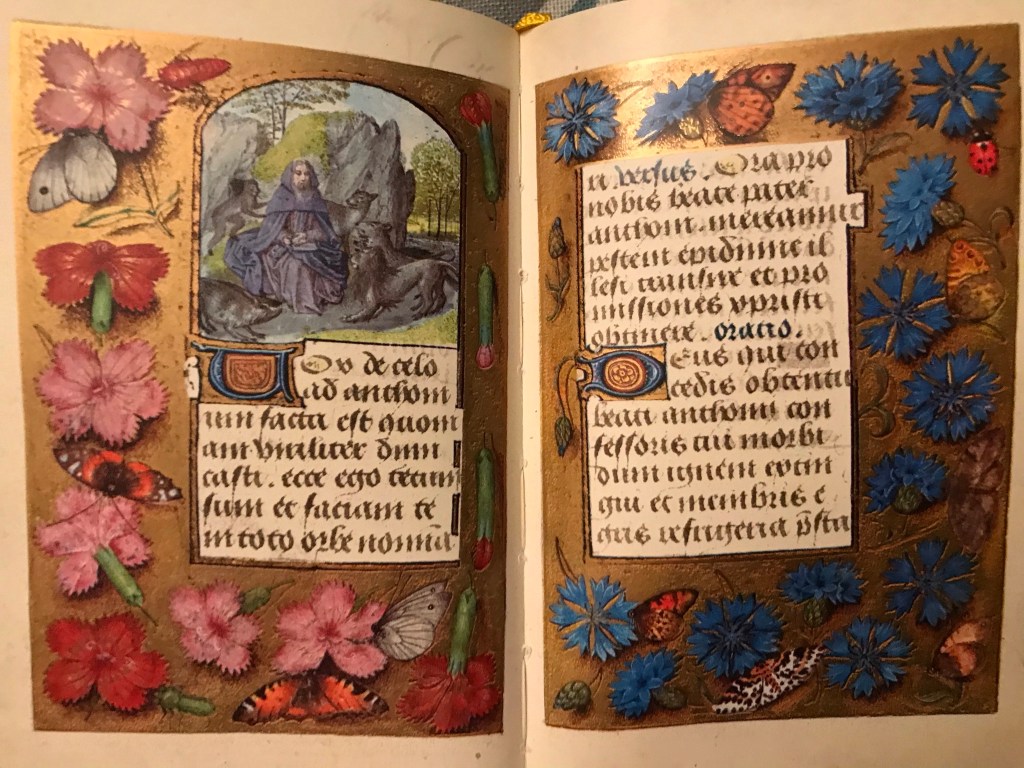 Vox de celo
ad anthoni
um facta est quoni
am viriliter dimi
casti . ecce ego tecum
sum et faciam te
in toto orbe nomina
ri versus. Ora pro
nobis beate pater
anthoni . mereamur
pestem epidimie il
lesi transire et pro
missiones xpristi
obtinere . oratio .
Deus qui con
cedis obtentu
beati anthonii con
fessoris tui morbi
dum ignem extin
gui et membris e
gris refrigeria p̄sta